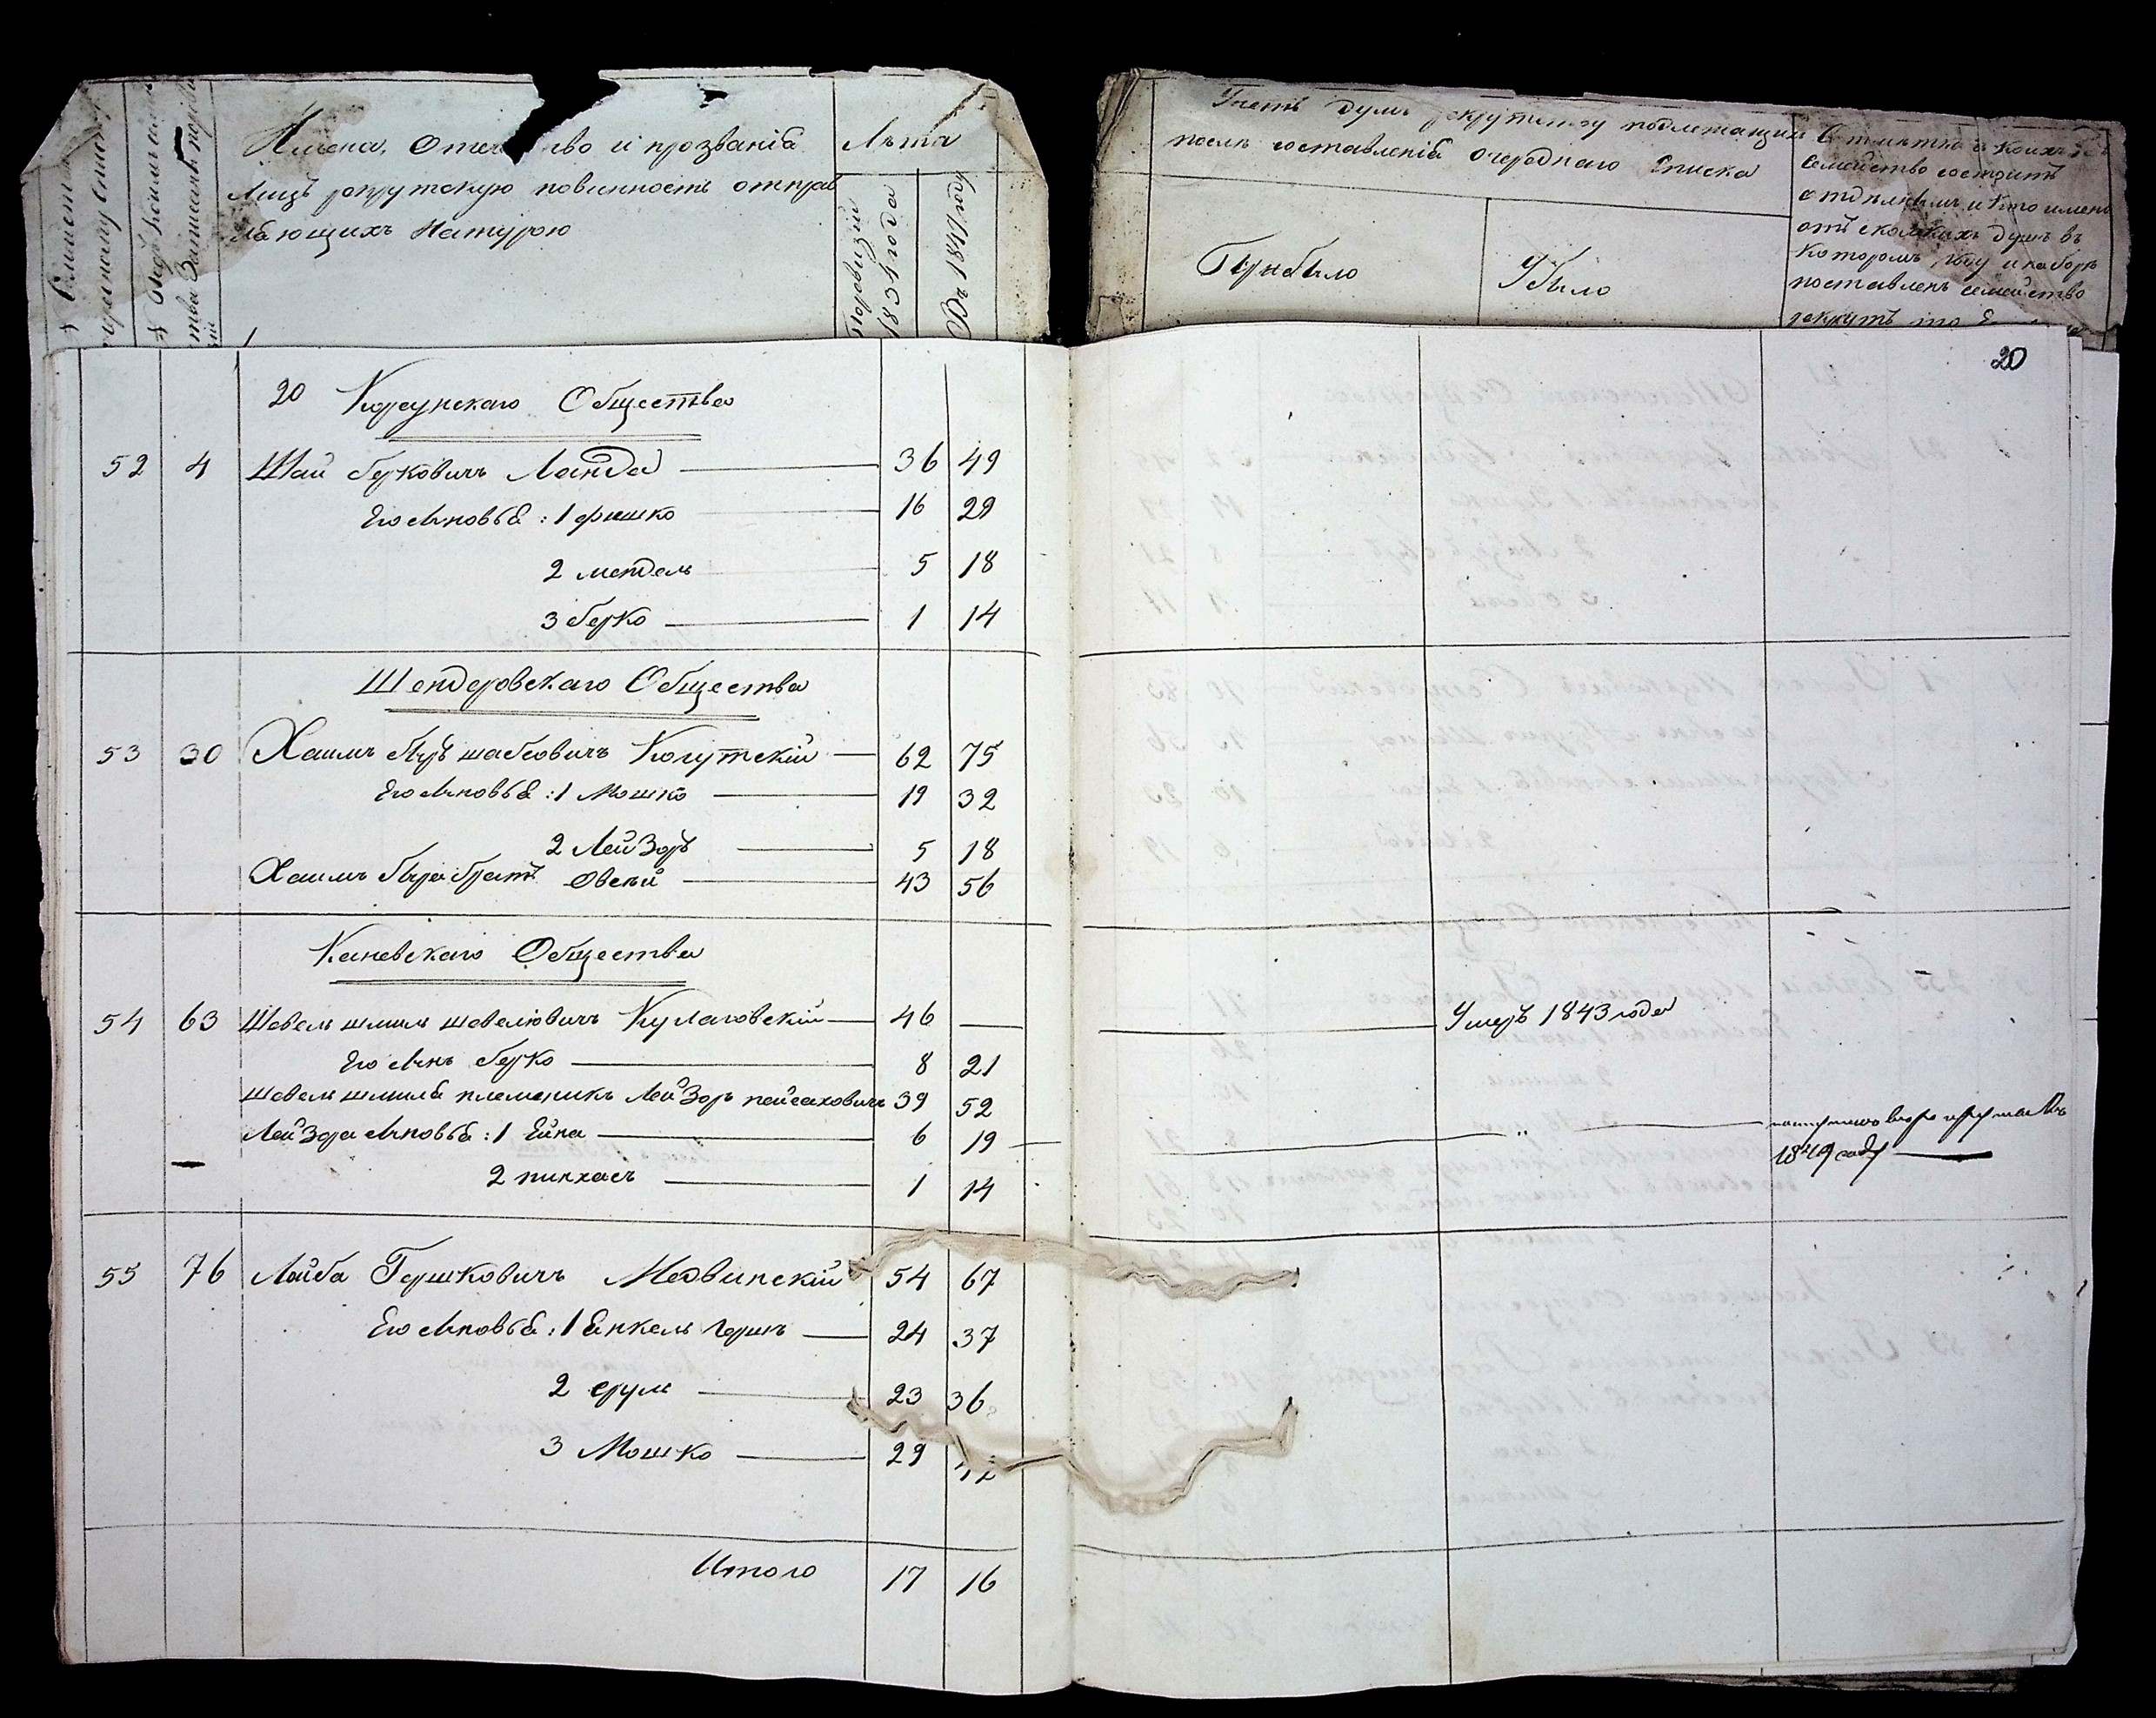 Имена, Отечество и прозванія
Лицъ рекрутскую повинность отправ
ляющихъ Натурою
Лѣта
По ревизіи
1834 года
Въ 1847 году
Счетъ душъ рекрутству подлежащимъ
послѣ составленія очереднаго Списка
Прибыло
Убыло
семейство состоитъ
отъ сколькихъ душъ въ
которомъ году и наборѣ
поставленъ семейство
20
20 Корсунскаго Общества
52 4 Шай Берковичъ Ланда 36 49
Его сыновья: 1 Фишко 16 29
2 Мендель 5 18
3 Берко 1 14
Шендеровскаго Общества
53 30 Хаимъ Беръ Шабсовичъ Когутскій 62 75
Его сыновья: 1 Мошко 19 32
2 Лейзоръ 5 18
Хаимъ Бера братъ Овсей 43 56
Каневскаго Общества
54 63 Шевель Шмиль Шевелювичъ Кулаговскій 46 — Умеръ 1843 года
Его сынъ Берко 8 21
Шевель Шмиля племеникъ Лейзоръ Пейсаховичъ 39 52
Лейзора сыновья: 1 Ейна 6 19
1849 году
2 Пинхасъ 1 14
55 76 Лейба Гершковичъ Медвинскій 54 67
Его сыновья: 1 Янкель Гершъ 24 37
2 Сруль 23 36
3 Мошко 29 42
Итого 17 16